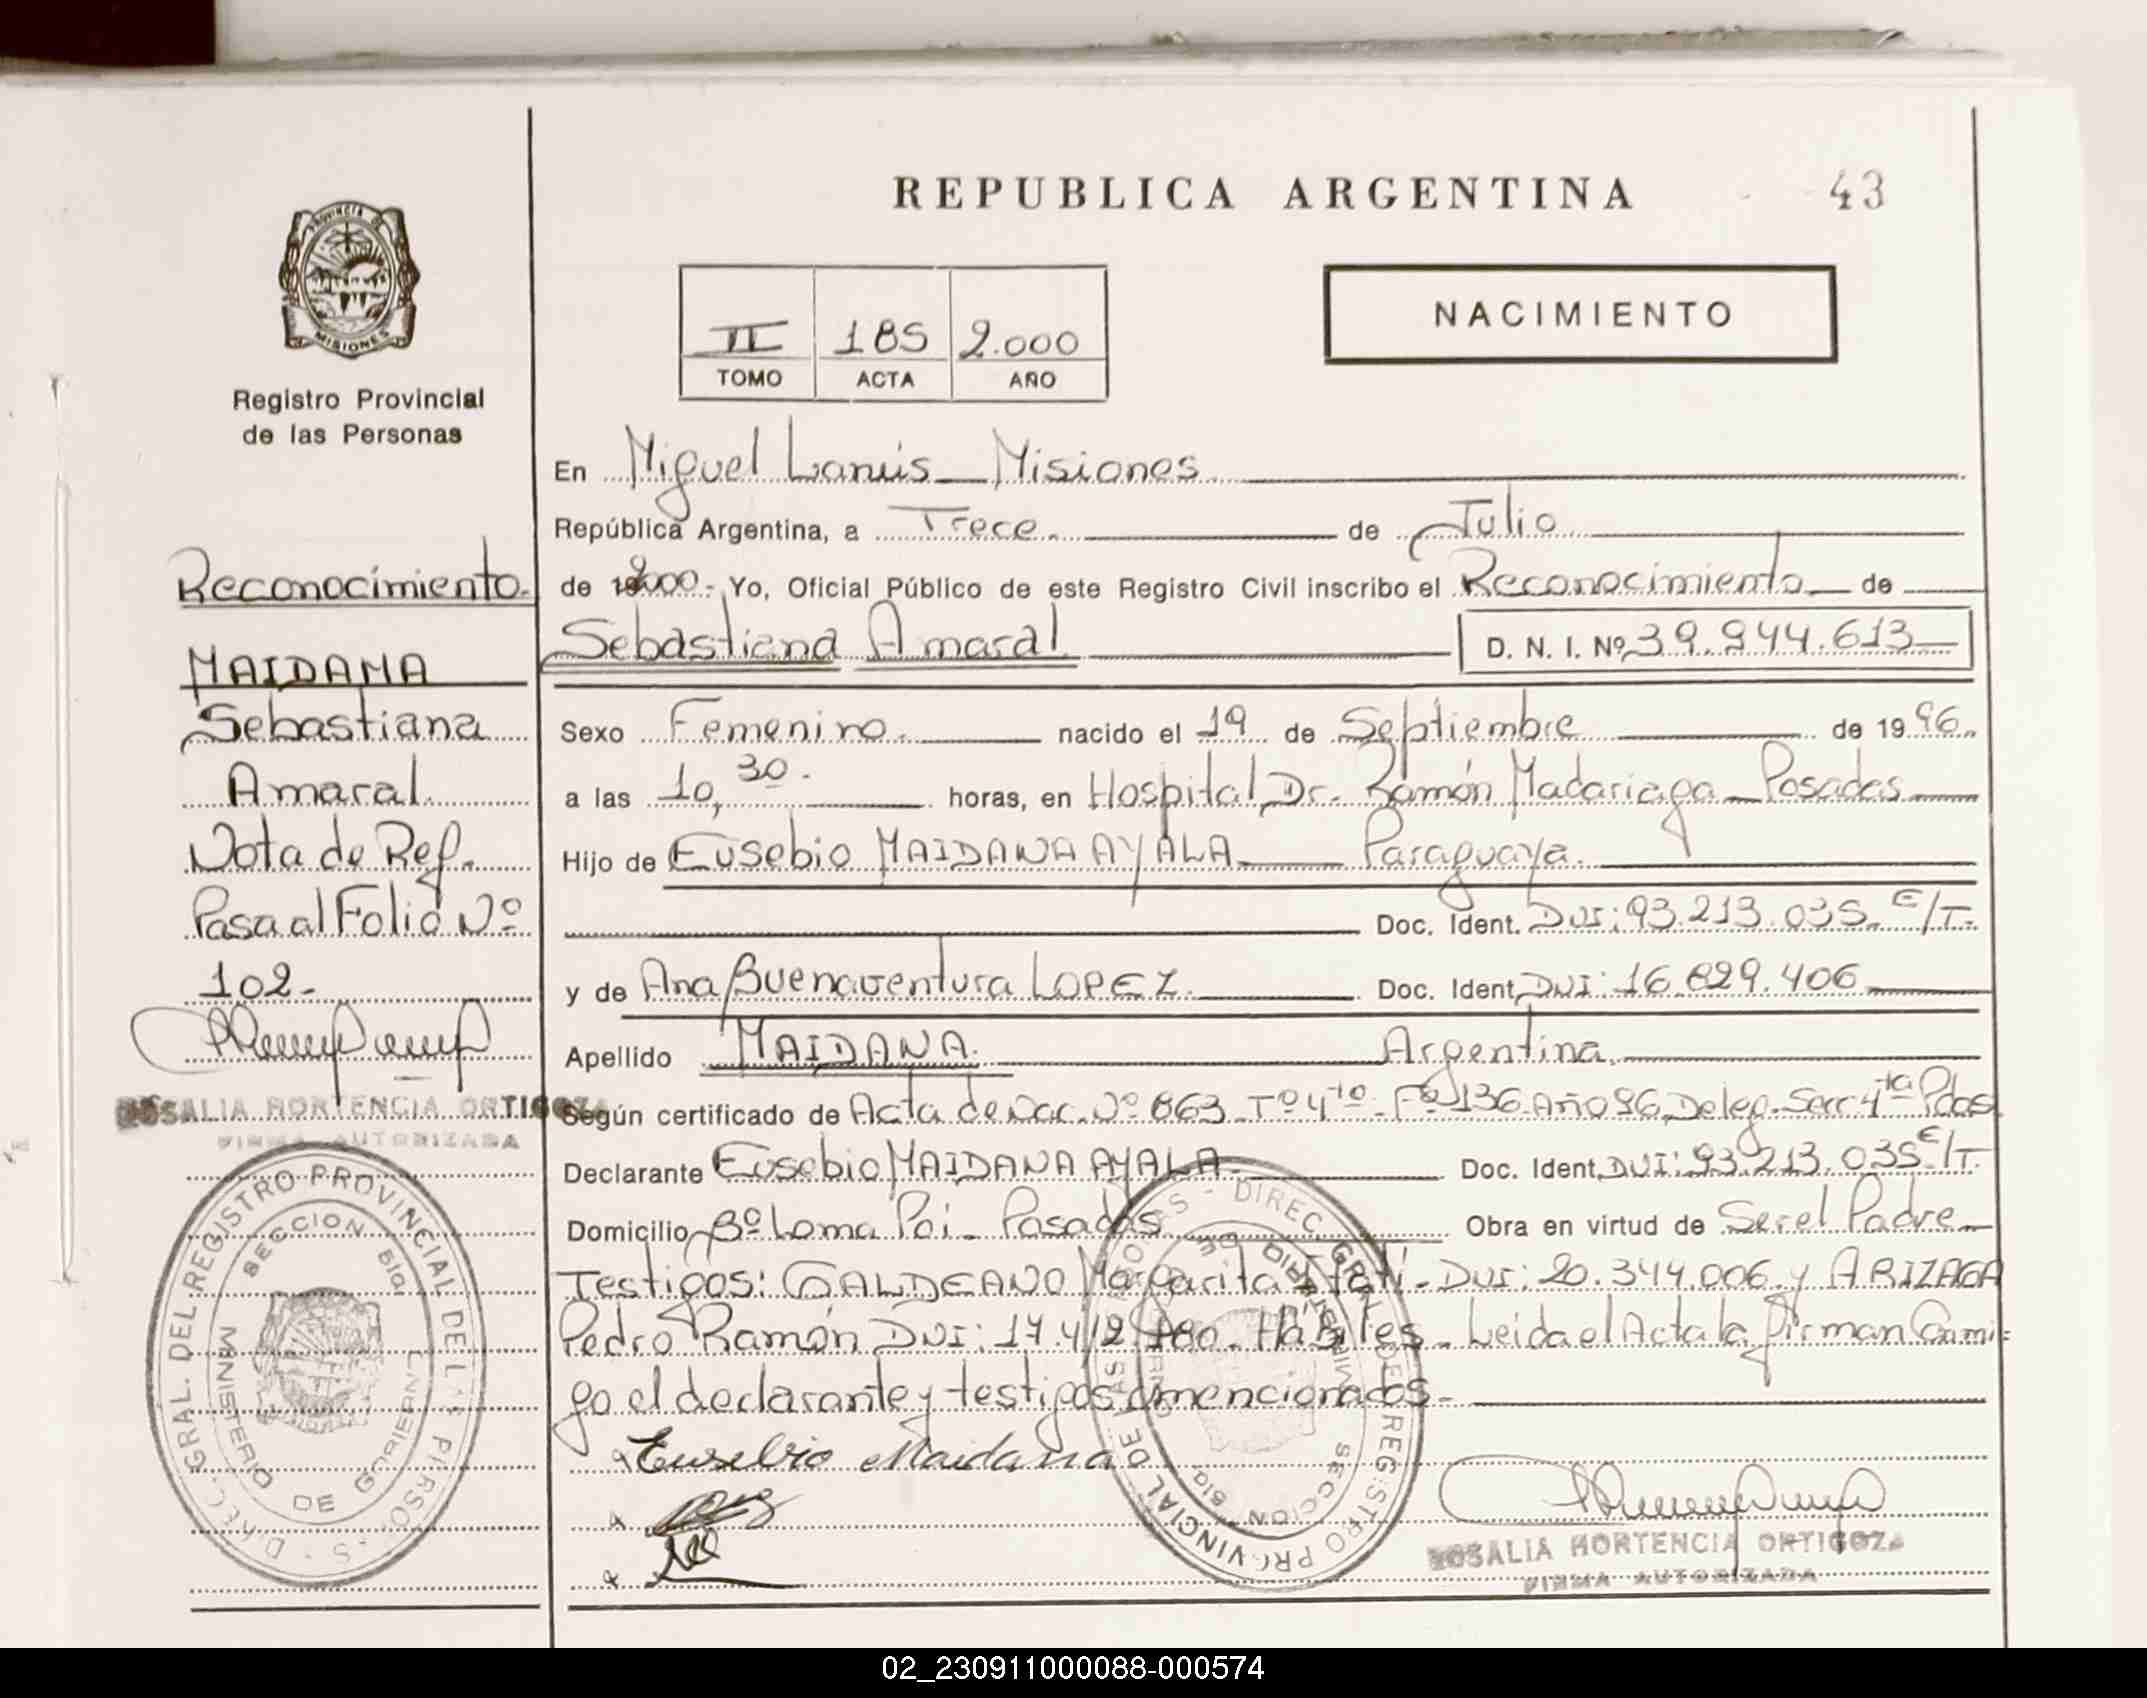 REPUBLICA ARGENTINA
43
PROVINCIA DE
MISIONES
Registro Provincial
de las Personas
II 185 2.000
TOMO ACTA AÑO
NACIMIENTO
Reconocimiento.
MAIDANA
Sebastiana
Amaral.
Nota de Ref.
Pasa al Folio Nº
102.-
ROSALIA HORTENCIA ORTIGOZA
FIRMA AUTORIZADA
DIREC. GRAL. DEL REGISTRO PROVINCIAL DE LAS PERSONAS
SECCION 8va
MINISTERIO DE GOBIERNO
En Miguel Lanús - Misiones.
República Argentina, a Trece. de Julio
de 2000.- Yo, Oficial Público de este Registro Civil inscribo el Reconocimiento de
Sebastiana Amaral. D. N. I. Nº 39.944.613
Sexo Femenino. nacido el 19 de Septiembre de 1996.
a las 10,30. horas, en Hospital Dr. Ramón Madariaga - Posadas
Hijo de Eusebio MAIDANA AYALA Paraguaya.
Doc. Ident. DNI: 93.213.035. E/T.
y de Ana Buenaventura LOPEZ. Doc. Ident. DNI: 16.829.406
Apellido MAIDANA. Argentina.
Según certificado de Acta de Nac. Nº 863 Tº 4to. Fº 136 Año 96 Deleg. Secc. 4ta Pdas
Declarante Eusebio MAIDANA AYALA. Doc. Ident. DNI: 93.213.035 E/T.
Domicilio Bº Loma Poi - Posadas. Obra en virtud de Ser el Padre
Testigos: GALDEANO Margarita Itatí - DNI: 20.344.006 y ARIZAGA
Pedro Ramón DNI: 17.412.180. Hábiles. Leida el Acta la firman Conmi=
go el declarante y testigos mencionados.
Eusebio Maidana
DIREC. GRAL. DEL REGISTRO PROVINCIAL DE LAS PERSONAS
SECCION 8va
MINISTERIO DE GOBIERNO
ROSALIA HORTENCIA ORTIGOZA
FIRMA AUTORIZADA
02_230911000088-000574